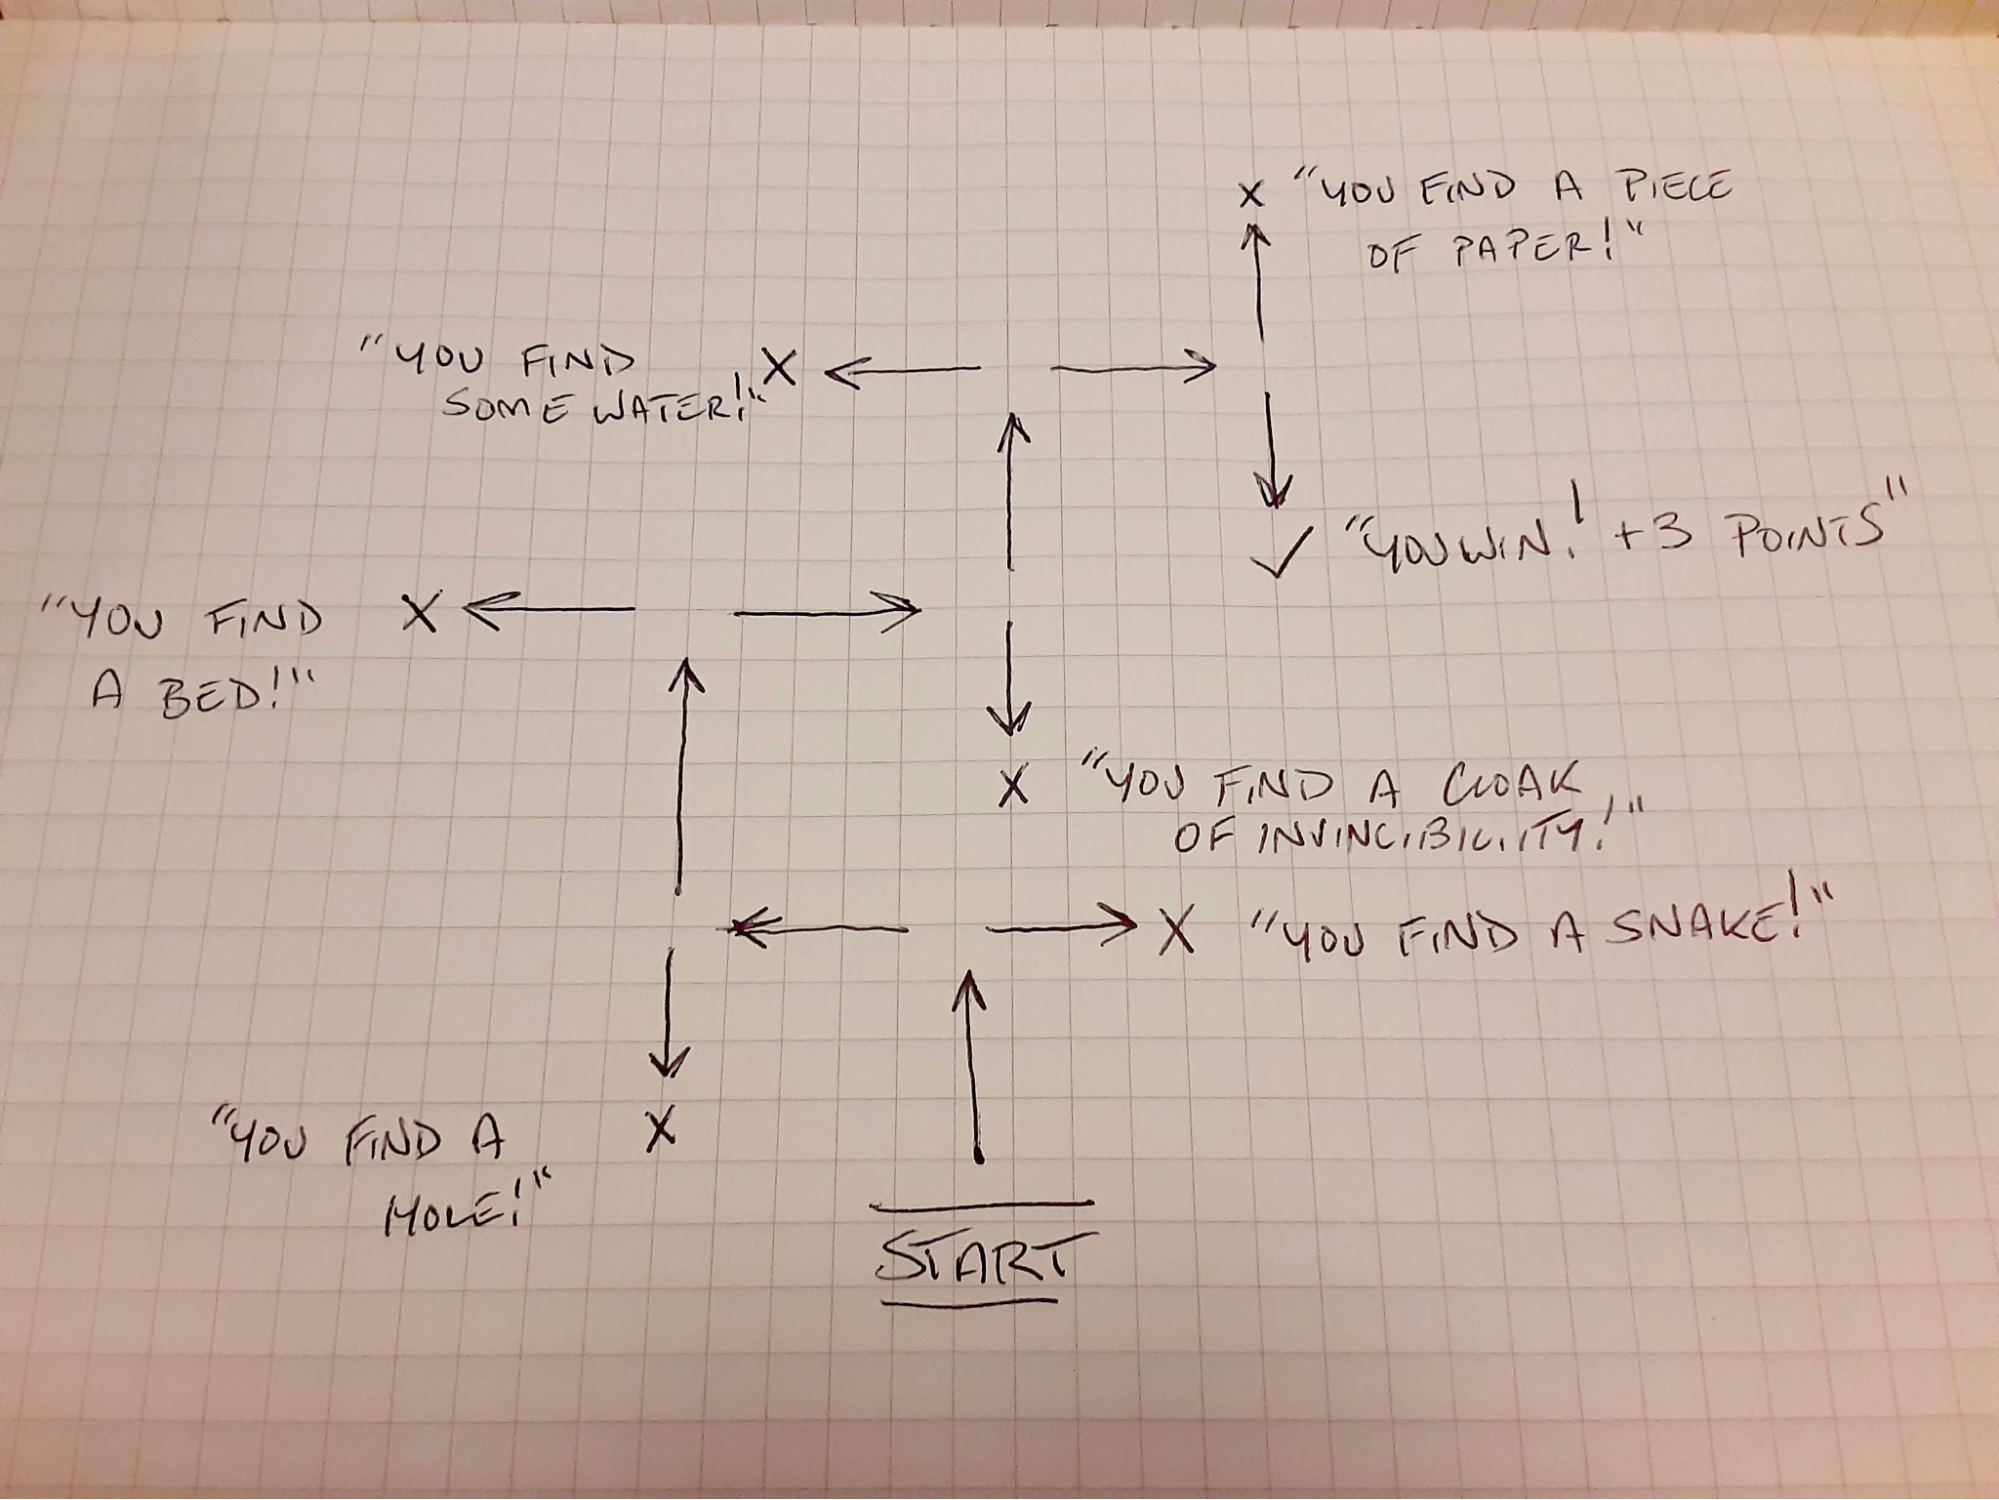 "YOU FIND A PIECE
OF PAPER!"
"YOU FIND
SOME WATER!"
"YOU WIN! +3 POINTS"
"YOU FIND
A BED!"
"YOU FIND A CLOAK
OF INVINCIBILITY!"
"YOU FIND A SNAKE!"
"YOU FIND A
HOLE!"
START